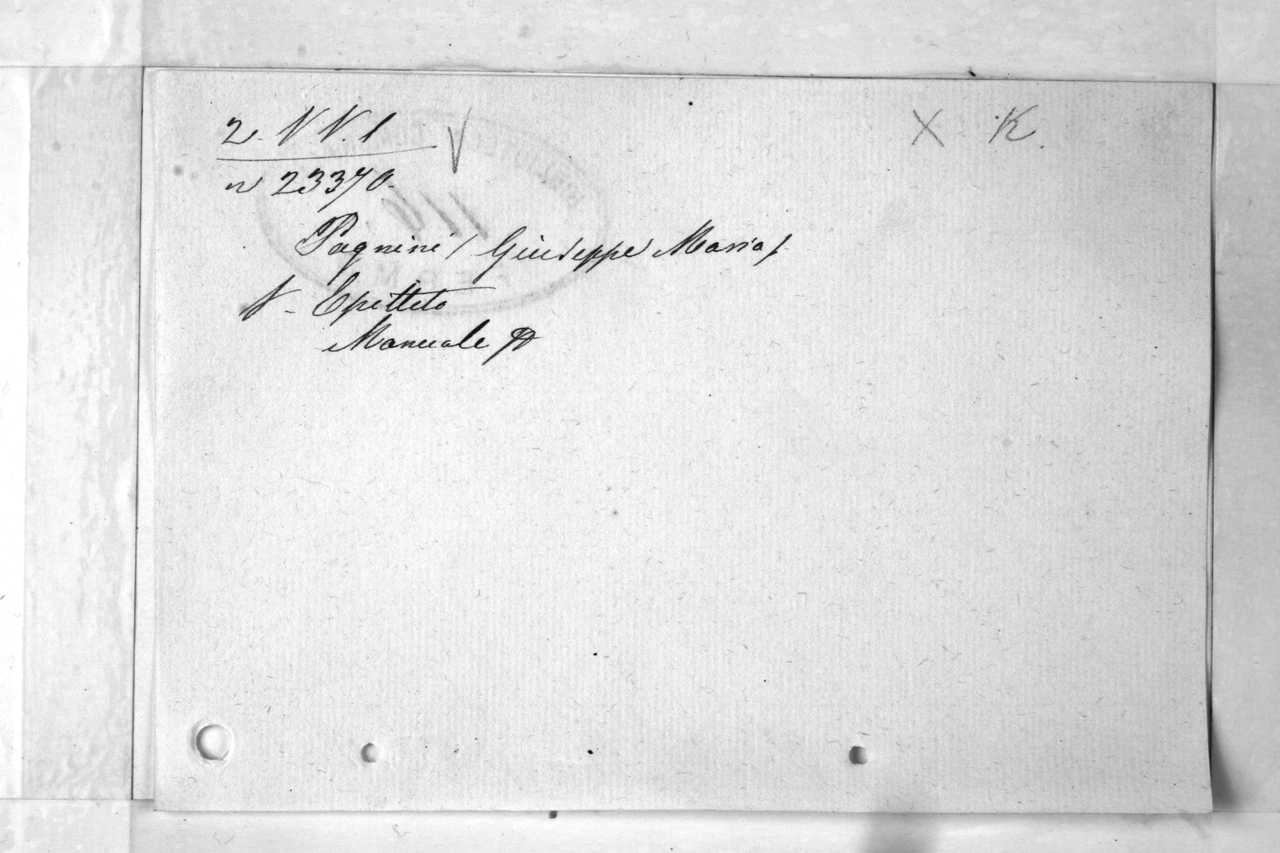 2. V V. 1 V X K.
n 23370.
Pagnini / Giuseppe Maria /.
V - Epitteto
Manuale
116